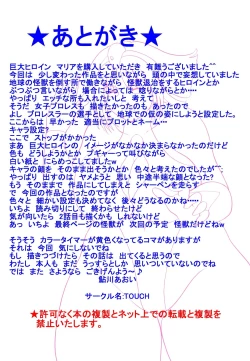 ★あとがき★
巨大ヒロイン マリアを購入していただき 有難うございました^^
今回は 少し変わった作品をと思いながら 頭の中で妄想していました
地球の怪獣を倒す所で働きながら 怪獣退治をするヒロインとか
ぶつぶつ言いながら 場合によっては 唸りながらとか・・・・
やっぱり エッチな所も入れたいしと 考えて
そうだ 女子プロレスも 描きたかったのも あったので
よし プロレスラーの選手として 地球での仮の姿にしようと設定した。
ここからは 早かった 適当にプロットとネーム・・・
キャラ設定？
ここで ストップがかかった
まあ 巨大ヒロインのイメージがなかなか決まらなかったのだけど
色も どうしようかとか ブギャーって叫びながら
白い紙と にらめっこしてましたw
キャラの顔を そのまま出そうかとか 色々と考えたのでしたが^^;
やっぱり 出すのは ヤメようと 思い 中途半端な顔となった？
もう そのままで 作品にしてしまえと シャーペンを走らす
で 今回の作品となったのですが
色々と 細かい設定も決めてなく 後々どうなるのかね・・・・
いちよ 読み切りにして 終わらせたけど
気が向いたら 2話目も描くかも しれないけど
あっ いちよ 最終ページの怪獣が 次回の予定 怪獣だけどねw
そうそう カラータイマーが黄色くなってるコマがありますが
それは 今回 気にしないでね
もし 描きつづけたら その話は 出てくると思うので
わたし 本人も まだ うっすらとしか 思いついていないのでね
では また さようなら ごきげんよう～♪
鮎川あおい
サークル名:TOUCH
★許可なく本の複製とネット上での転載と複製を
禁止いたします。